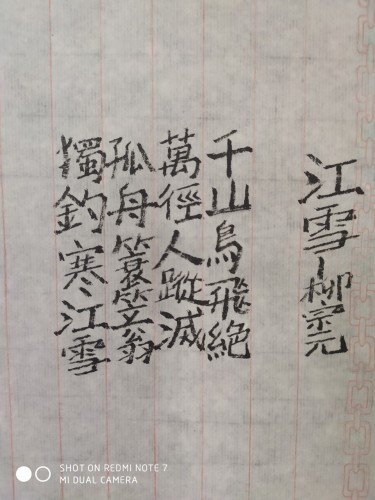 江雪－柳宗元
千山鳥飛絕
萬徑人蹤滅
孤舟簑笠翁
獨釣寒江雪
SHOT ON REDMI NOTE 7
MI DUAL CAMERA